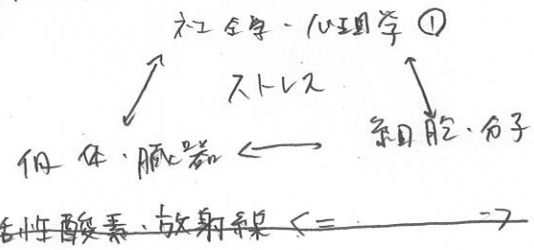 社会学・心理学 ①
ストレス
個体・臓器 ←→ 細胞・分子
活性酸素・放射線 <= ->